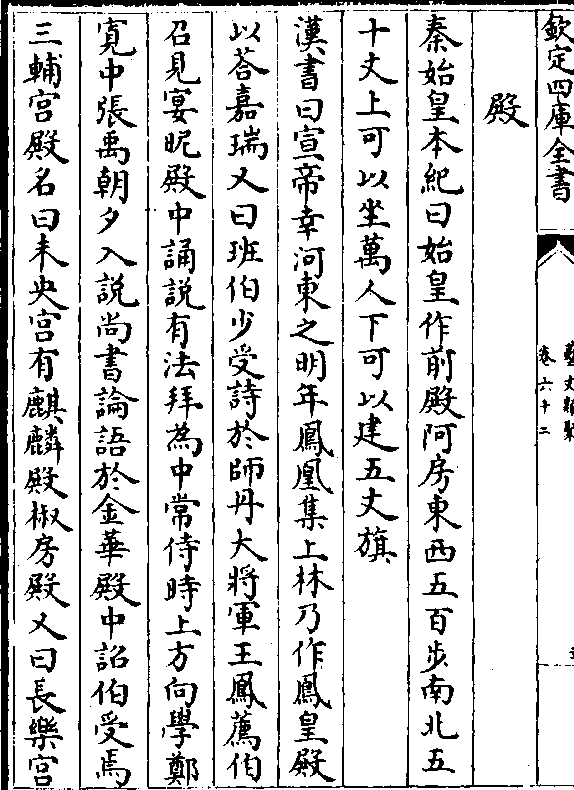 欽定四庫全書
藝文類聚
卷六十二
殿
秦始皇本紀曰始皇作前殿阿房東西五百步南北五
十丈上可以坐萬人下可以建五丈旗
漢書曰宣帝幸河東之明年鳳凰集上林乃作鳳皇殿
以荅嘉瑞又曰班伯少受詩於師丹大將軍王鳳薦伯
召見宴昵殿中誦說有法拜為中常侍時上方向學鄭
寬中張禹朝夕入說尚書論語於金華殿中詔伯受焉
三輔宮殿名曰未央宮有麒麟殿椒房殿又曰長樂宮